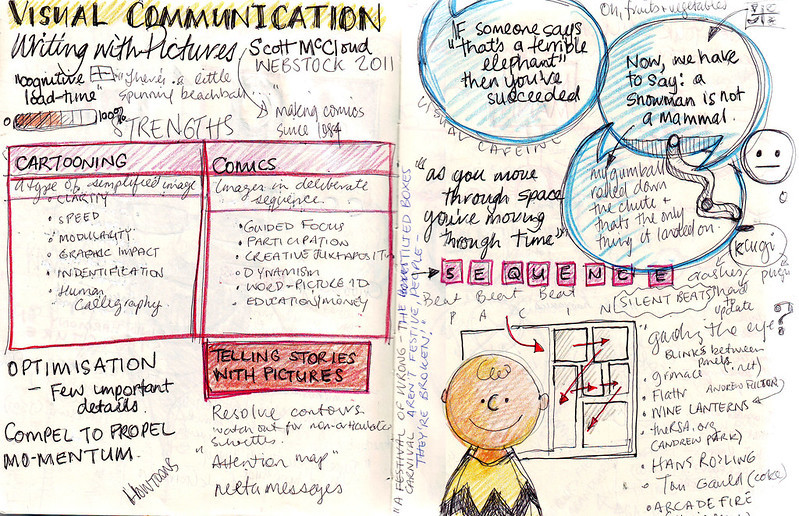 VISUAL COMMUNICATION
Writing with Pictures
Scott McCloud
WEBSTOCK 2011
"cognitive load-time"
"There's a little
spinning beachball..."
0 100%
"making comics
since 1984
STRENGTHS
CARTOONING
A type of simplified image
• CLARITY
• SPEED
• MODULARITY
• GRAPHIC IMPACT
• INDENTIFICATION
• Human
Calligraphy
COMICS
Images in deliberate
sequence.
• GUIDED FOCUS
• PARTICIPATION
• CREATIVE JUXTAPOSITION
• DYNAMISM
• WORD-PICTURE
• EDUCATION/MONEY
OPTIMISATION
– Few important
details.
COMPEL TO PROPEL
MO-MENTUM.
Howtoons
TELLING STORIES
WITH PICTURES
Resolve contours
watch out for
"Attention map"
meta messages
"A FESTIVAL OF WRONG – THE
CARNIVAL AREN'T FESTIVE PEOPLE –
THEY'RE BROKEN!"
IF someone says
"that's a terrible
elephant"
then you've
succeeded
VISUAL CAFFEINE
Oh, fruits + vegetables
Now, we have
to say: a
snowman is not
a mammal.
my gumball
rolled down
the chute +
that's the only
thing it landed on
"as you move
through space
you're moving
through time"
SEQUENCE
Beat Beat Beat
P A C I N
SILENT BEATS
crashes
update
"guiding the eye"
BLINKS between
panels.
• grimace
• Flattr
ANDREW
• NINE LANTERNS
• theRSA.org
(ANDREW PARK)
• HANS ROSLING
• Tom Gauld
• ARCADE FIRE